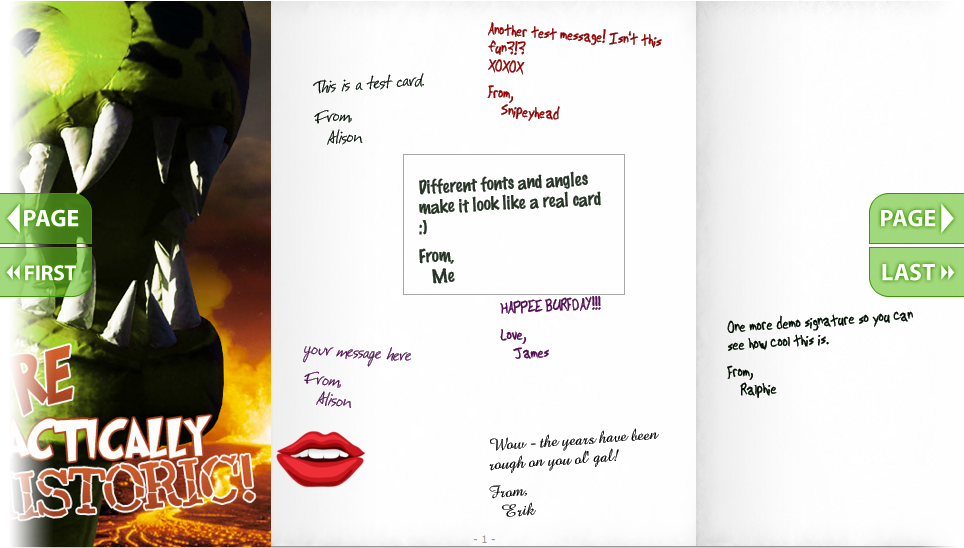 RE
ACTICALLY
ISTORIC!
PAGE
FIRST
This is a test card.
From,
Alison
Another test message! Isn't this
fun?!?
XOXOX
From,
Snipeyhead
Different fonts and angles
make it look like a real card
:)
From,
Me
HAPPEE BURFDAY!!!
Love,
James
your message here
From,
Alison
Wow - the years have been
rough on you ol' gal!
From,
Erik
- 1 -
PAGE
LAST
One more demo signature so you can
see how cool this is.
From,
Ralphie